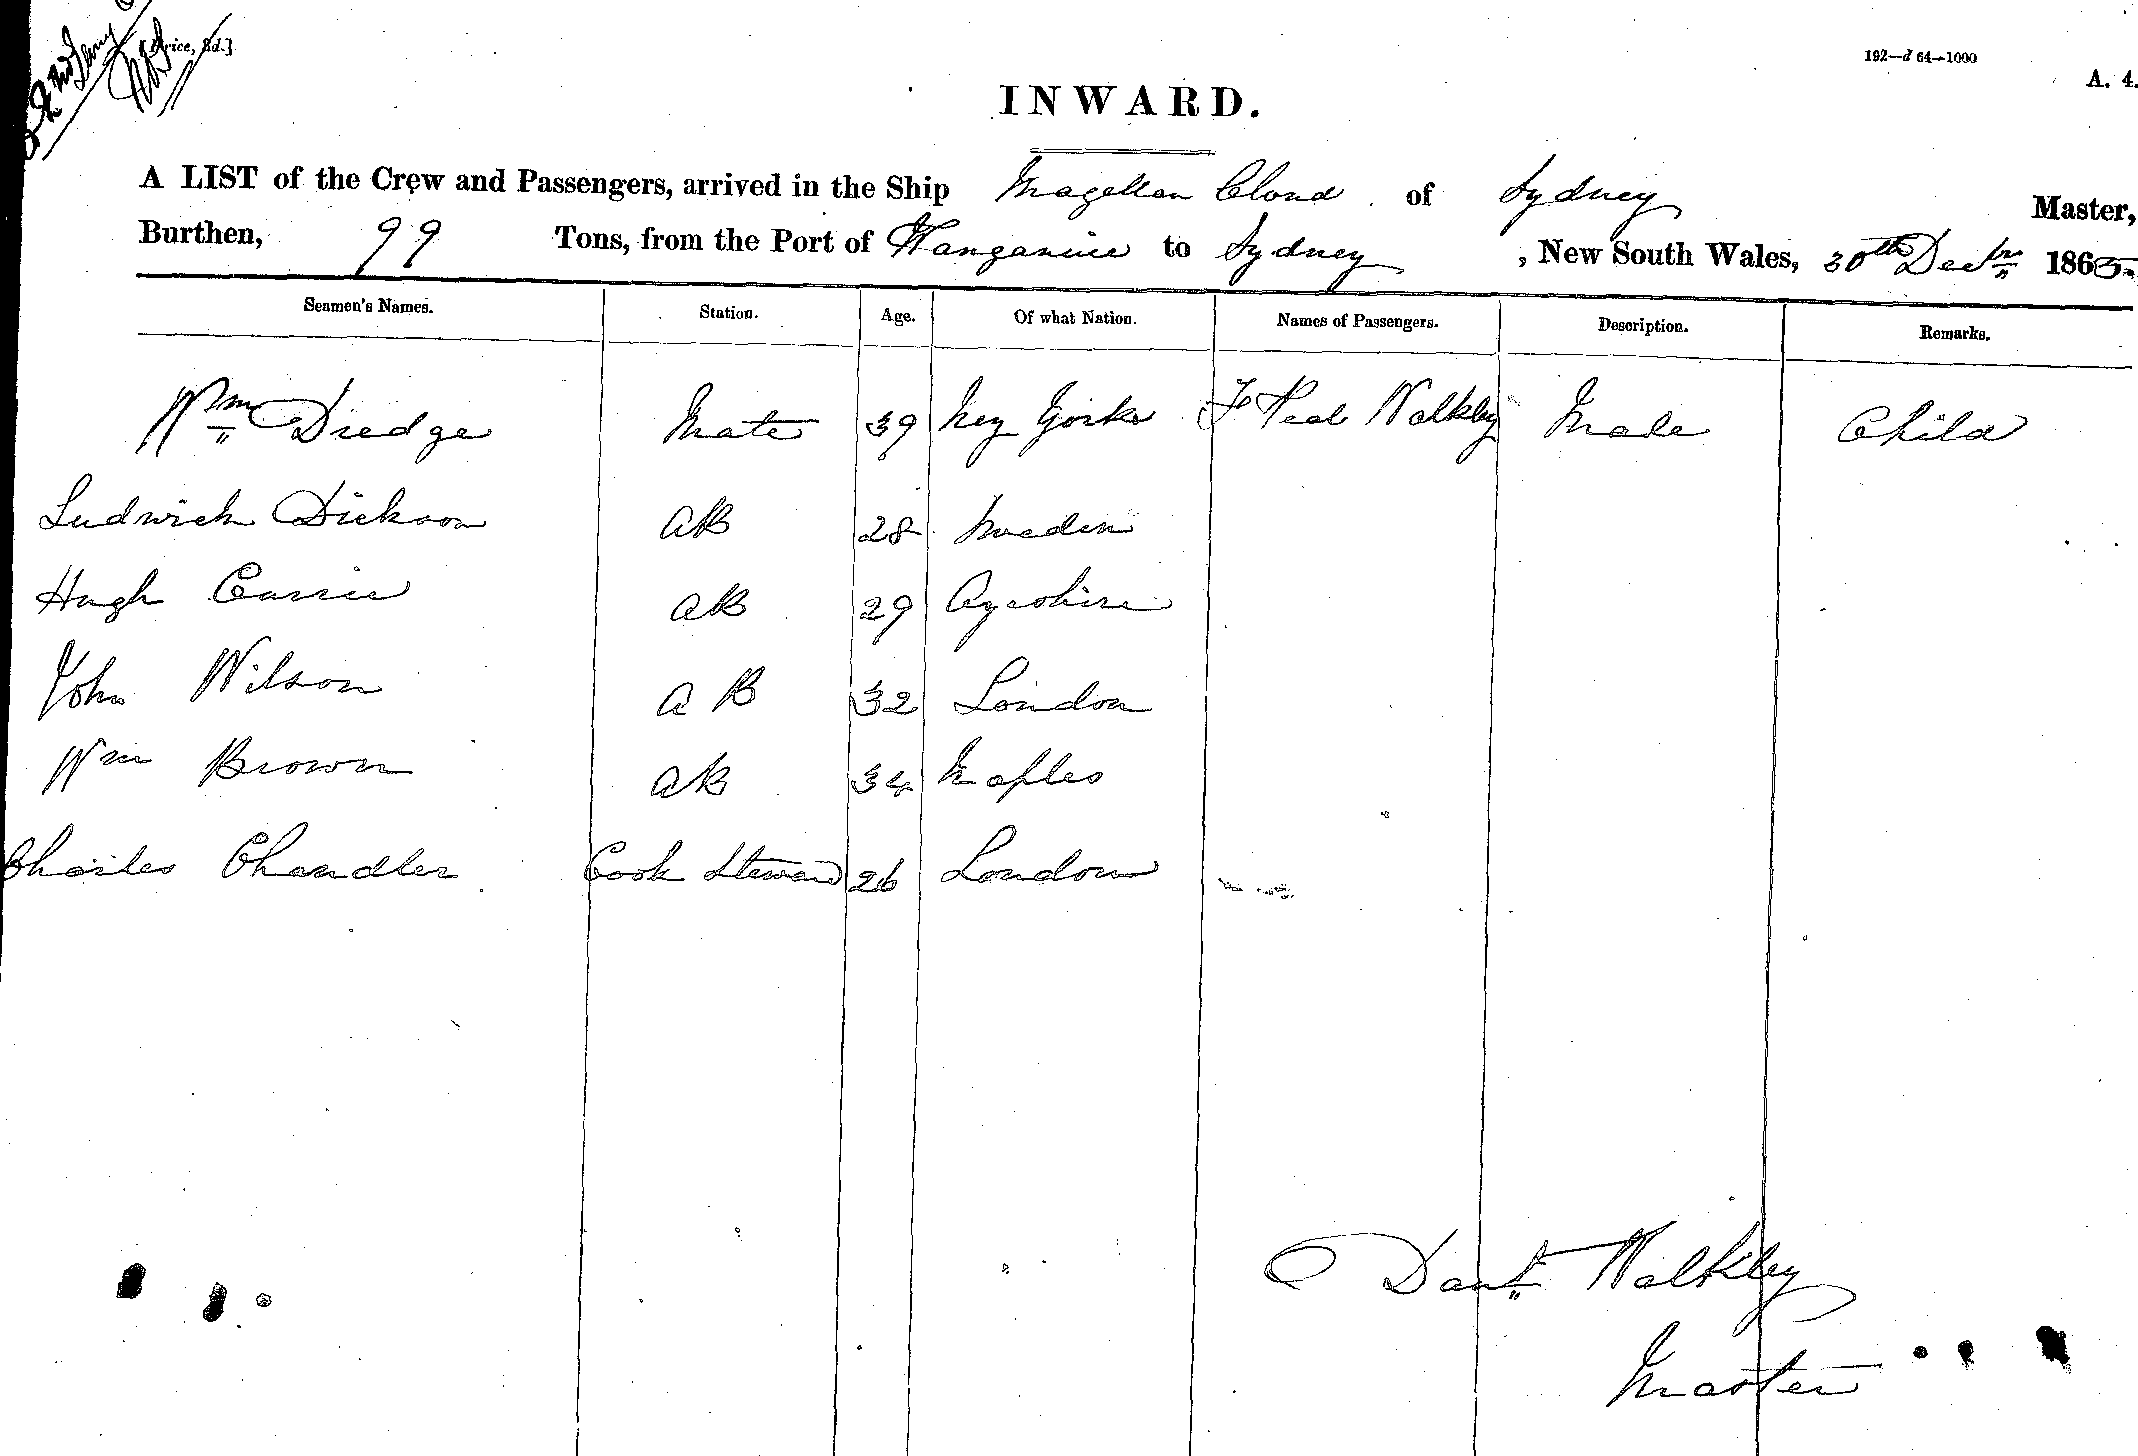 Price, 3d.]
192—d 64—1000
A. 4.
INWARD.
A LIST of the Crew and Passengers, arrived in the Ship Magellan Cloud of Sydney Master,
Burthen, 99 Tons, from the Port of Wanganui to Sydney, New South Wales, 30th Decr 1865.
Seamen's Names. Station. Age. Of what Nation. Names of Passengers. Description. Remarks.
Wm Dredge Mate 39 Ney Yorke Peal Walkley Male Child
Ludwich Dickson AB 28 Sweden
Hugh Currie AB 29 Ayrshire
John Wilson A B 32 London
Wm Brown AB 34 Naples
Charles Chandler Cook Steward 26 London
Danl Walkley
Master